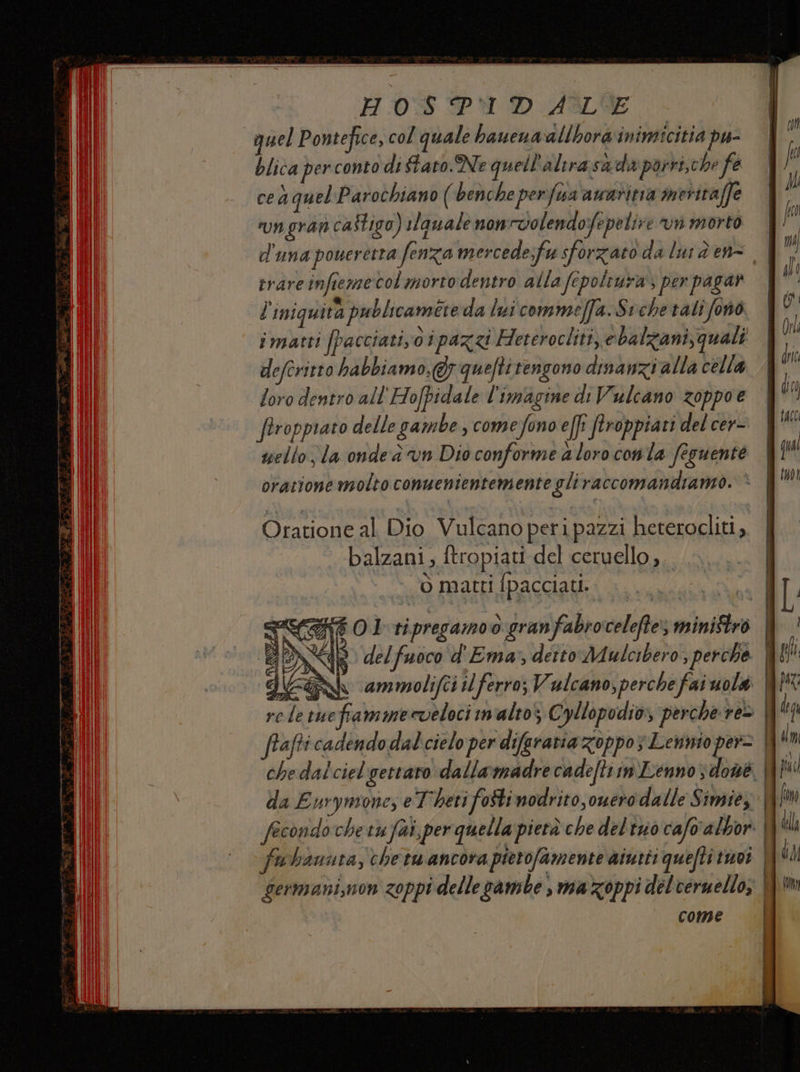 HOSPIDALE
quel Pontefice, col quale haueua allhora inimicitia pu-
blica per conto di ſtato. Ne quell'altra sà da porri, che fe
ce à quel Parochiano (benche per ſua auaritia meritaſſe
vn gran caſtigo) ilquale non volendo ſepelire vn morto
d'una poueretta ſenza mercede, fu sforzato da lui à en-
trare inſieme col morto dentro alla ſepoltura, per pagar
l'iniquità publicamẽte da lui commeſſa. Si che tali ſono
i matti ſpacciati, ò i pazzi Heterocliti, e balzani, quali
deſcritto habbiamo, & queſti tengono dinanzi alla cella
loro dentro all'Hoſpidale l'imagine di Vulcano zoppo e
ſtroppiato delle gambe, come ſono eſſi ſtroppiati del cer-
uello, la onde à vn Dio conforme à loro con la ſeguente
oratione molto conuenientemente gli raccomandiamo.
Oratione al Dio Vulcano per i pazzi heterocliti,
balzani, ſtropiati del ceruello,
ò matti ſpacciati.
O I ti pregamo ò gran fabro celeſte, miniſtro
del fuoco d'Ema, detto Mulcibero, perche
ammoliſci il ferro; Vulcano, perche fai uola
re le tue fiamme veloci in alto; Cyllopodio, perche re-
ſtaſti cadendo dal cielo per diſgratia zoppo; Lennio per-
che dal ciel gettato dalla madre cadeſti in Lenno; doue
da Eurymone, e Theti foſti nodrito, ouero dalle Simie,
ſecondo che tu ſai, per quella pietà che del tuo caſo alhor
fu hauuta, che tu ancora pietoſamente aiutti queſti tuoi
germani, non zoppi delle gambe, ma zoppi del ceruello,
come